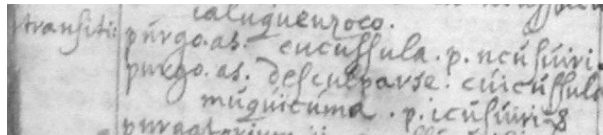 ialuquenzoco.
transiti: purgo.as. cucussula. p. ncusuiri.
purgo.as. desculparse. cuicussula
muquicuma. p. icusuiri